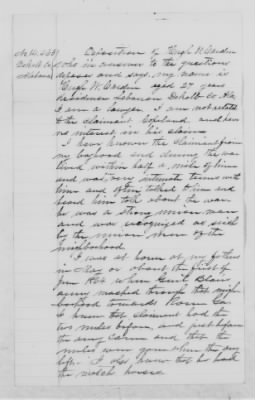 No 14.553
Dekalb Co
Alabama
Deposition of Hugh W. Cardon
who in answer to the questions
deposes and says, my name is
Hugh W. Cardon aged 27 years
residence Lebanon Dekalb Co. Ala
I am a lawyer. I am not related
to the claimant Copeland, and have
no interest in his claim
I have known the claimant from
my boyhood and during the war
lived within half a mile of him
and was on very intimate terms with
him and often talked to him and
heard him talk about the war
he was a strong union man
and was recognized as such
by the union men of the
neighborhood.
I was at home at my fathers
in May or about the first of
June 1864 when Genl. Blair
army marched through that neigh-
borhood towards Rome Ga.
I know that claimant had the
two mules before, and just before
the army came and that the
mules were gone when the army
left. I also know that he had
the horse